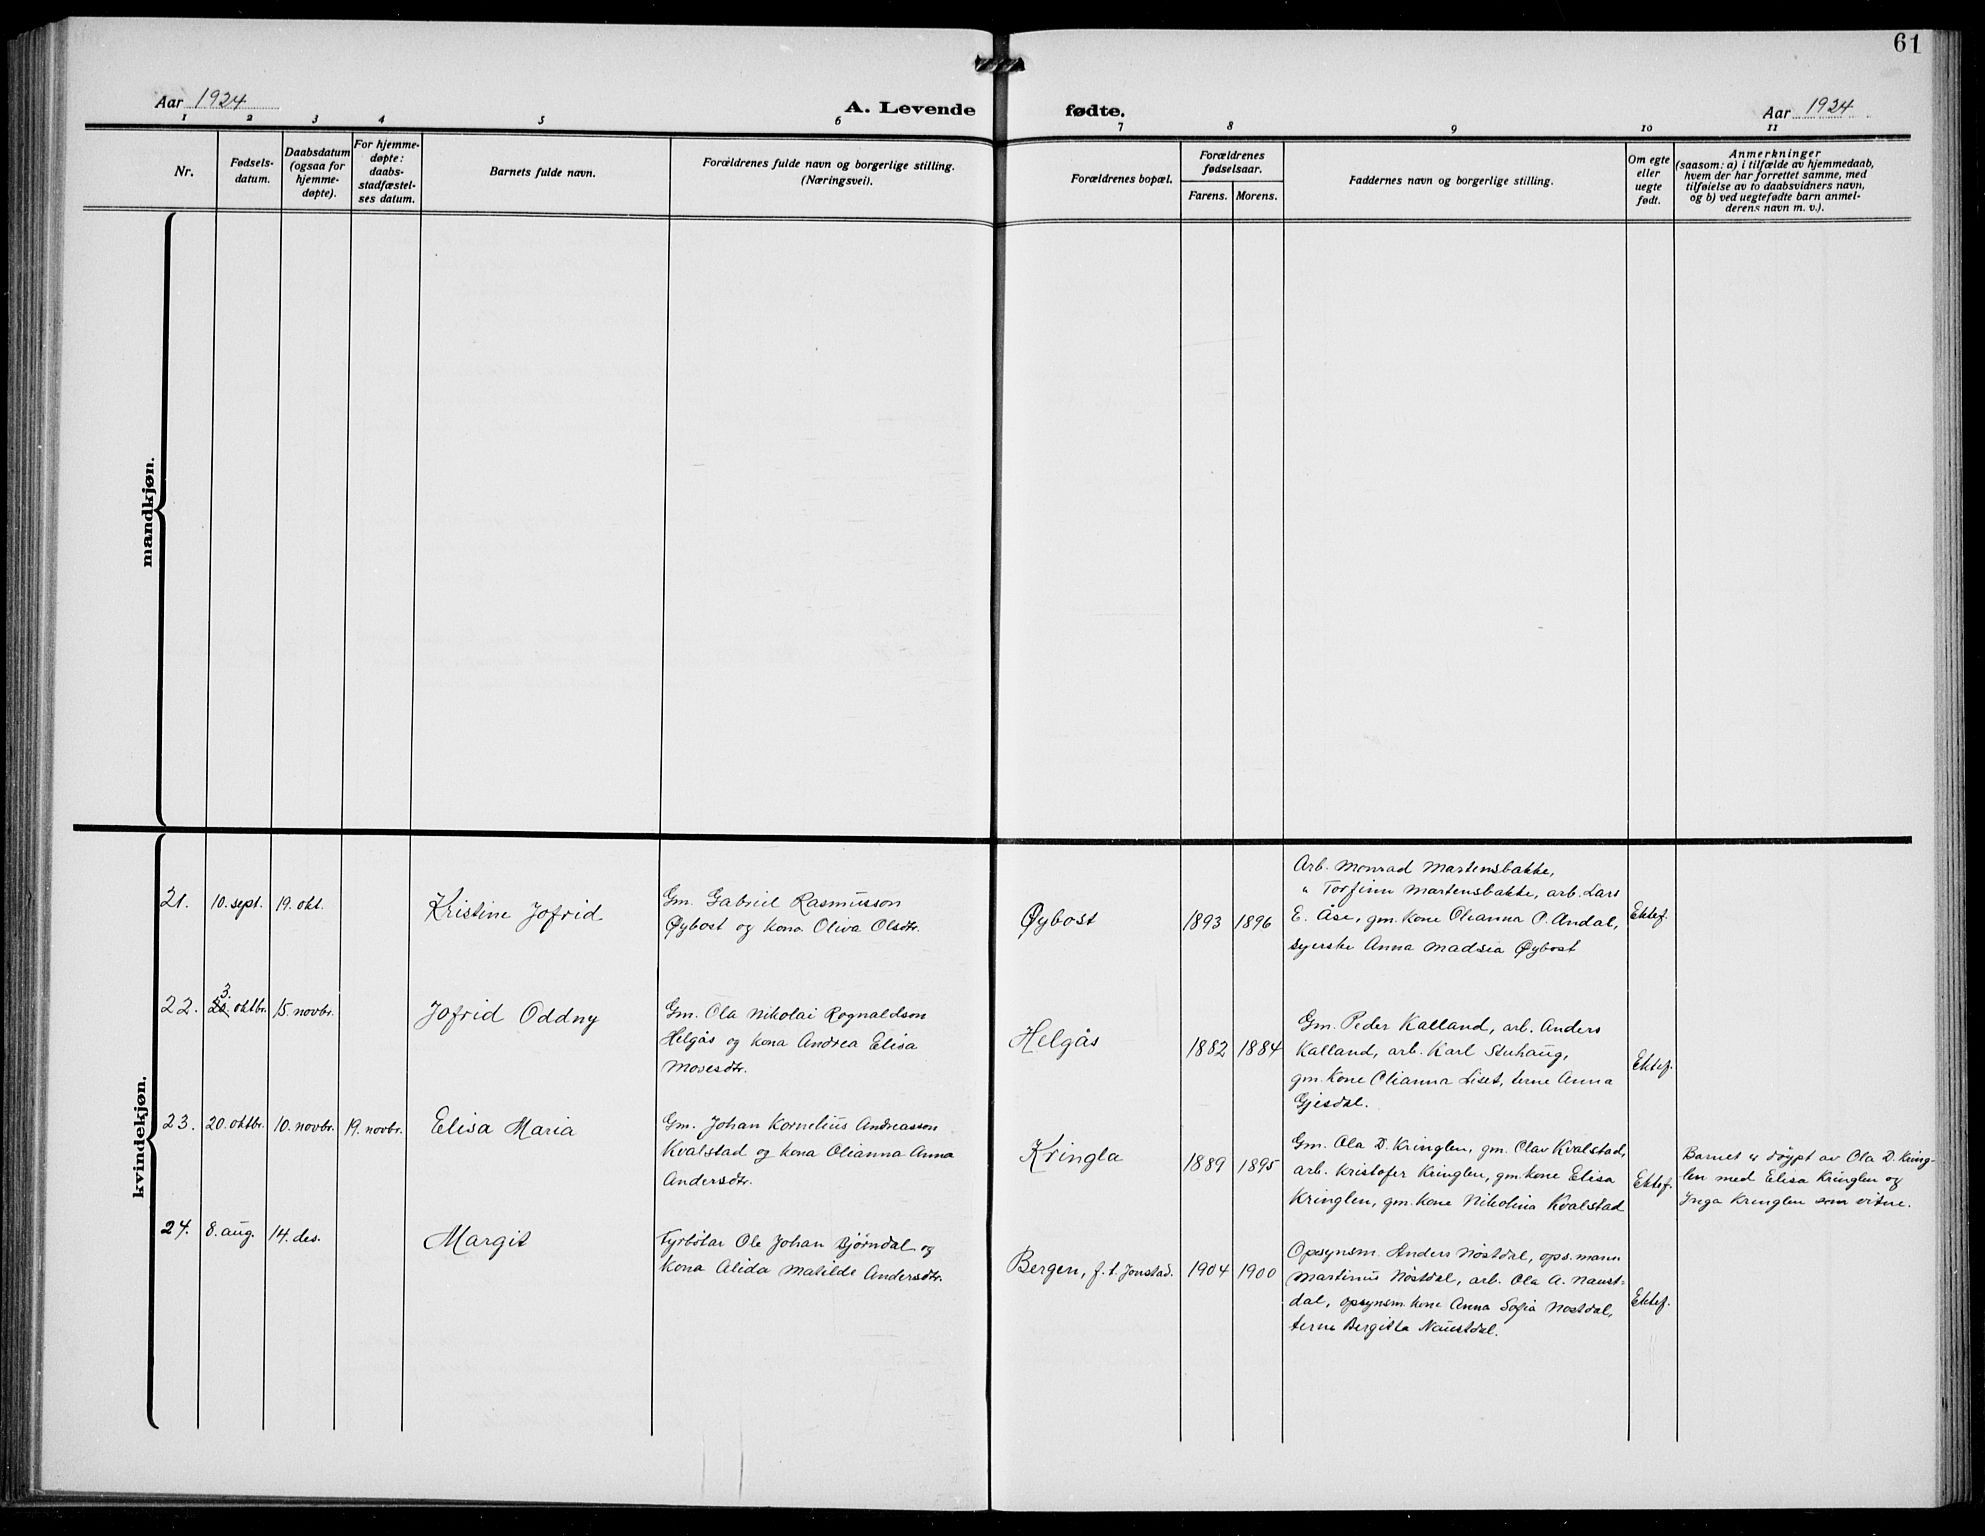 61
Aar 1924
A. Levende fødte.
Aar 1924
1 2 3 4 5 6 7 8 9 10 11
Nr.
Fødsels-
datum.
Daabsdatum
(ogsaa for
hjemme-
døpte).
For hjemme-
døpte:
daabs-
stadfæstel-
ses datum.
Barnets fulde navn.
Forældrenes fulde navn og borgerlige stilling.
(Næringsvei).
Forældrenes bopæl.
Forældrenes
fødselsaar.
Farens. Morens.
Faddernes navn og borgerlige stilling.
Om egte
eller
uegte
født.
Anmerkninger
(saasom: a) i tilfælde av hjemmedaab,
hvem der har forrettet samme, med
tilføielse av to daabsvidners navn,
og b) ved uegtefødte barn anmel-
derens navn m. v.).
mandkjøn.
kvindekjøn.
21. 10. sept. 19. okt.
Kristine Jofrid
Gm. Gabriel Rasmusson
Øybost og kona Oliva Olsdtr.
Øybost
1893 1896
Arb. Monrad Martensbakke,
" Torfinn Martensbakke, arb. Lars
E. Åse, gm. kone Olianna P. Andal,
syerske Anna Madsia Øybost
Ektef.
22. 3. oktbr. 15. novbr.
Jofrid Oddny
Gm. Ola Nikolai Rognaldson
Helgås og kona Andrea Elisa
Mosesdtr.
Helgås
1882 1884
Gm. Peder Kalland, arb. Anders
Kalland, arb. Karl Stuhaug,
gm. kone Olianna Liset, terne Anna
Gjesdal.
Ektef.
23. 20. oktbr. 10. novbr. 19. novbr.
Elisa Maria
Gm. Johan Kornelius Andreasson
Kvalstad og kona Olianna Anna
Andersdtr.
Kringla
1889 1895
Gm. Ola D. Kringlen, gm. Olav Kvalstad,
arb. Kristofer Kringlen, gm. kone Elisa
Kringlen, gm. kone Nikolina Kvalstad
Ektef.
Barnet er døypt av Ola D. Kring-
len med Elisa Kringlen og
Inga Kringlen som vitne.
24. 8. aug. 14. des.
Margit
Fyrbøtar Ole Johan Bjørndal og
kona Alida Matilde Andersdtr.
Bergen, f. t. Jonstad.
1904 1900
Opsynsm. Anders Nøstdal, ops. mann
Martinus Nøstdal, arb. Ola A. Naust-
dal, opsynsm. kone Anna Sofia Nøstdal,
terne Bergitta Naustdal.
Ektef.